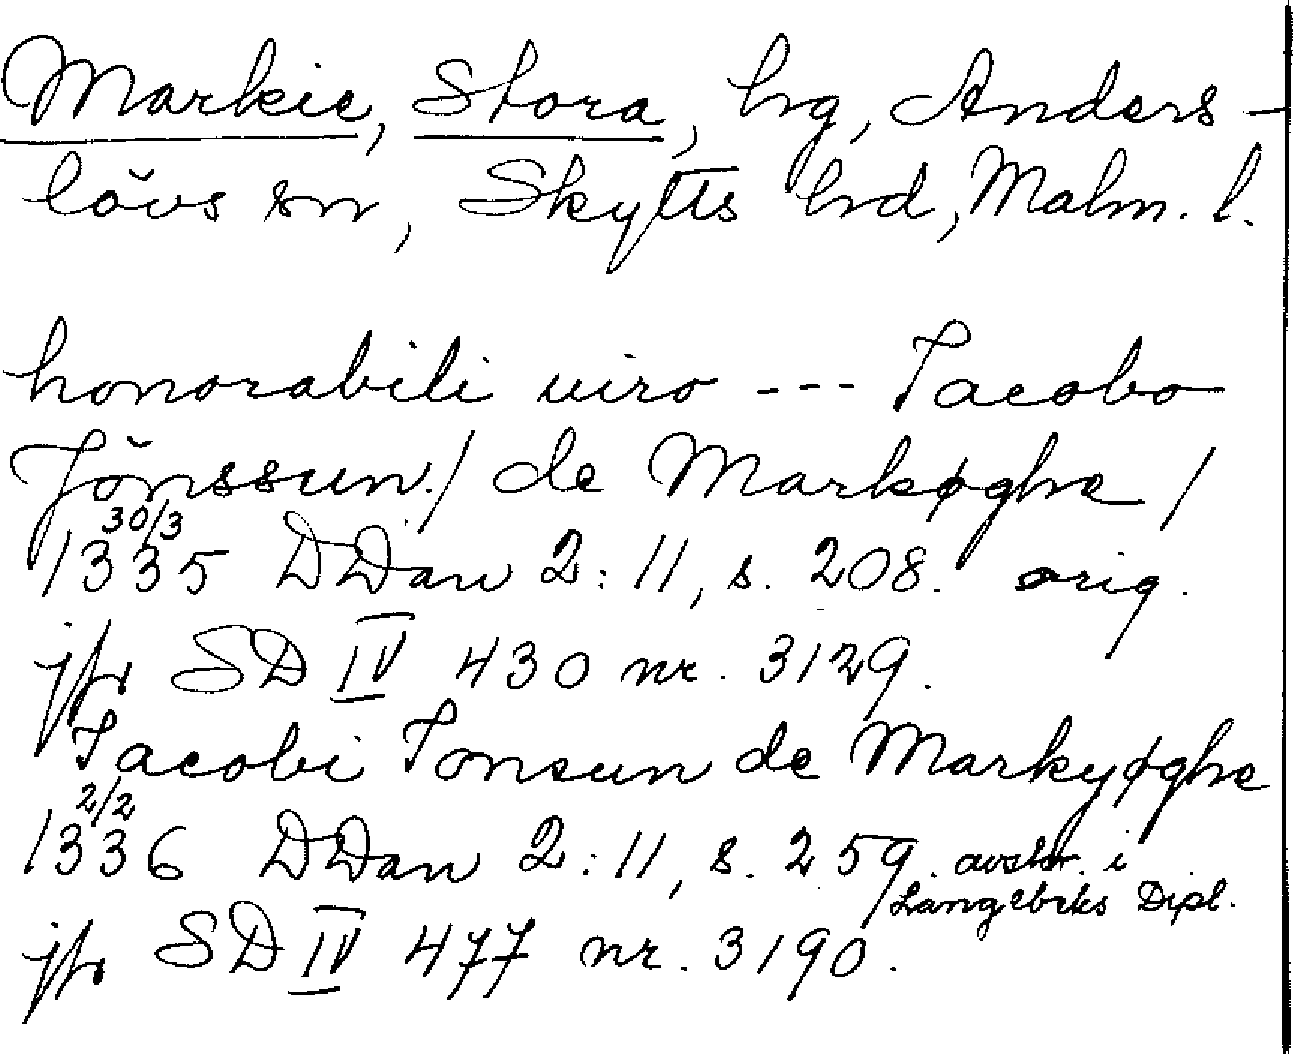 Markie, Stora, hrg, Anders-
lövs sn, Skytts hrd, Malm. l.
honorabili uiro --- Jacobo
Jönssun./ de Markøghe /
30/3
1335 DDan 2:11, s. 208. orig.
jfr SD IV 430 nr. 3129.
Jacobi Jonsun de Markyøghe
2/2
1336 DDan 2:11, s. 259. avskr. i
Langebeks Dipl.
jfr SD IV 477 nr. 3190.